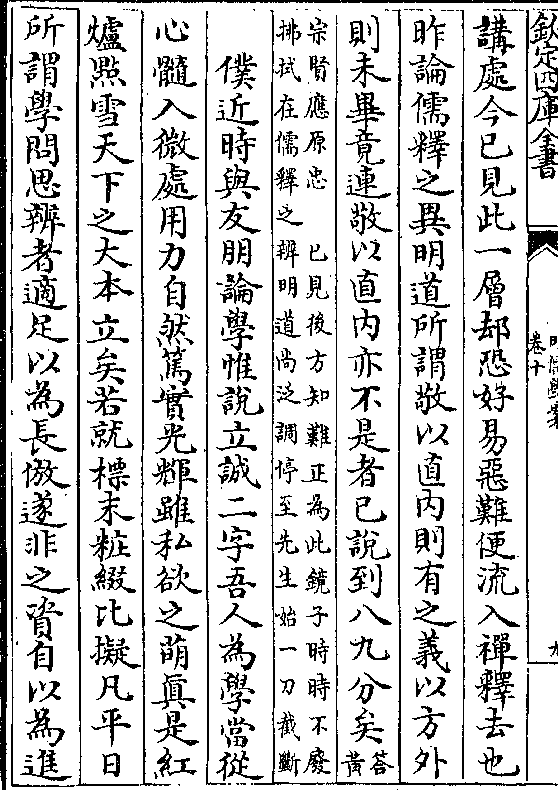 欽定四庫全書
明儒學案
卷十
九
講處今已見此一層却恐好易惡難便流入禪釋去也
昨論儒釋之異明道所謂敬以直內則有之義以方外
則未畢竟連敬以直內亦不是者已說到八九分矣答黃
宗賢應原忠　已見後方知難正為此鏡子時時不廢
拂拭在儒釋之辨明道尚泛調停至先生始一刀截斷
僕近時與友朋論學惟說立誠二字吾人為學當從
心髓入微處用力自然篤實光輝雖私欲之萌真是紅
爐㸃雪天下之大本立矣若就標末粧綴比擬凡平日
所謂學問思辨者適足以為長傲遂非之資自以為進